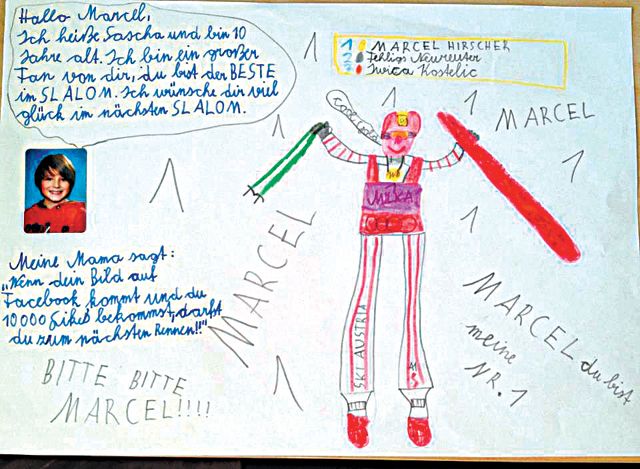 Hallo Marcel,
Ich heiße Sascha und bin 10
Jahre alt. Ich bin ein großer
Fan von dir, du bist der BESTE
im SLALOM. Ich wünsche dir viel
glück im nächsten SLALOM.
1
1 MARCEL HIRSCHER
2 Fehligs Neureuter
3 Ivica Kostelic
1
1
1
MARCEL
1
1
1
MIZKA
MARCEL
SKI AUSTRIA
Meine Mama sagt:
"Wenn dein Bild auf
Facebook kommt und du
10000 Likes bekommst, darfst
du zum nächsten Rennen!!"
MARCEL du bist
meine
NR. 1
1
BITTE BITTE
MARCEL!!!!